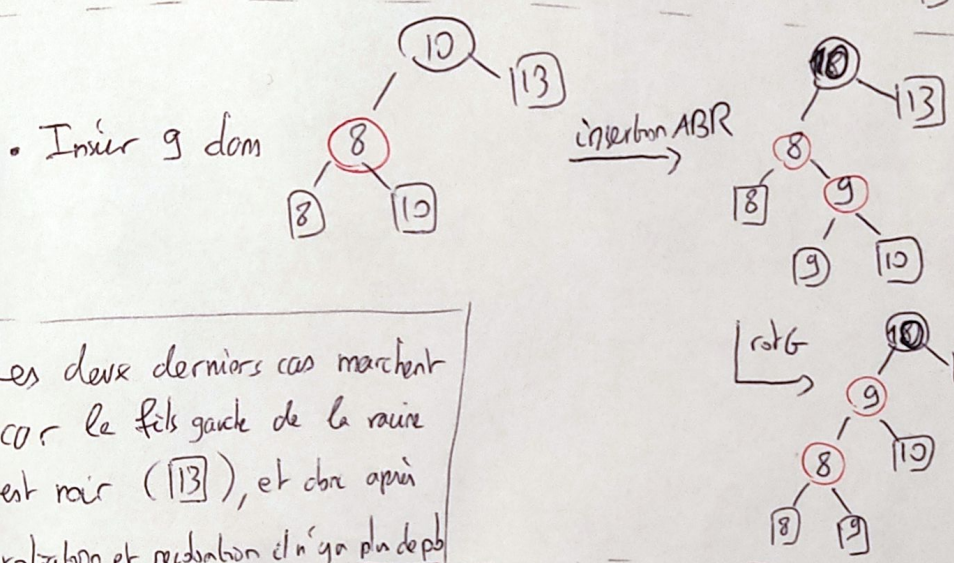 10
13
• Insérer 9 dans
8
8
10
insertion ABR
10
13
8
8
9
9
10
rotG
10
9
8
10
8
9
es deux derniers cas marchent
car le fils gauche de la racine
est noir (13), et donc après
rotation et recoloration il n'y a plus de pb